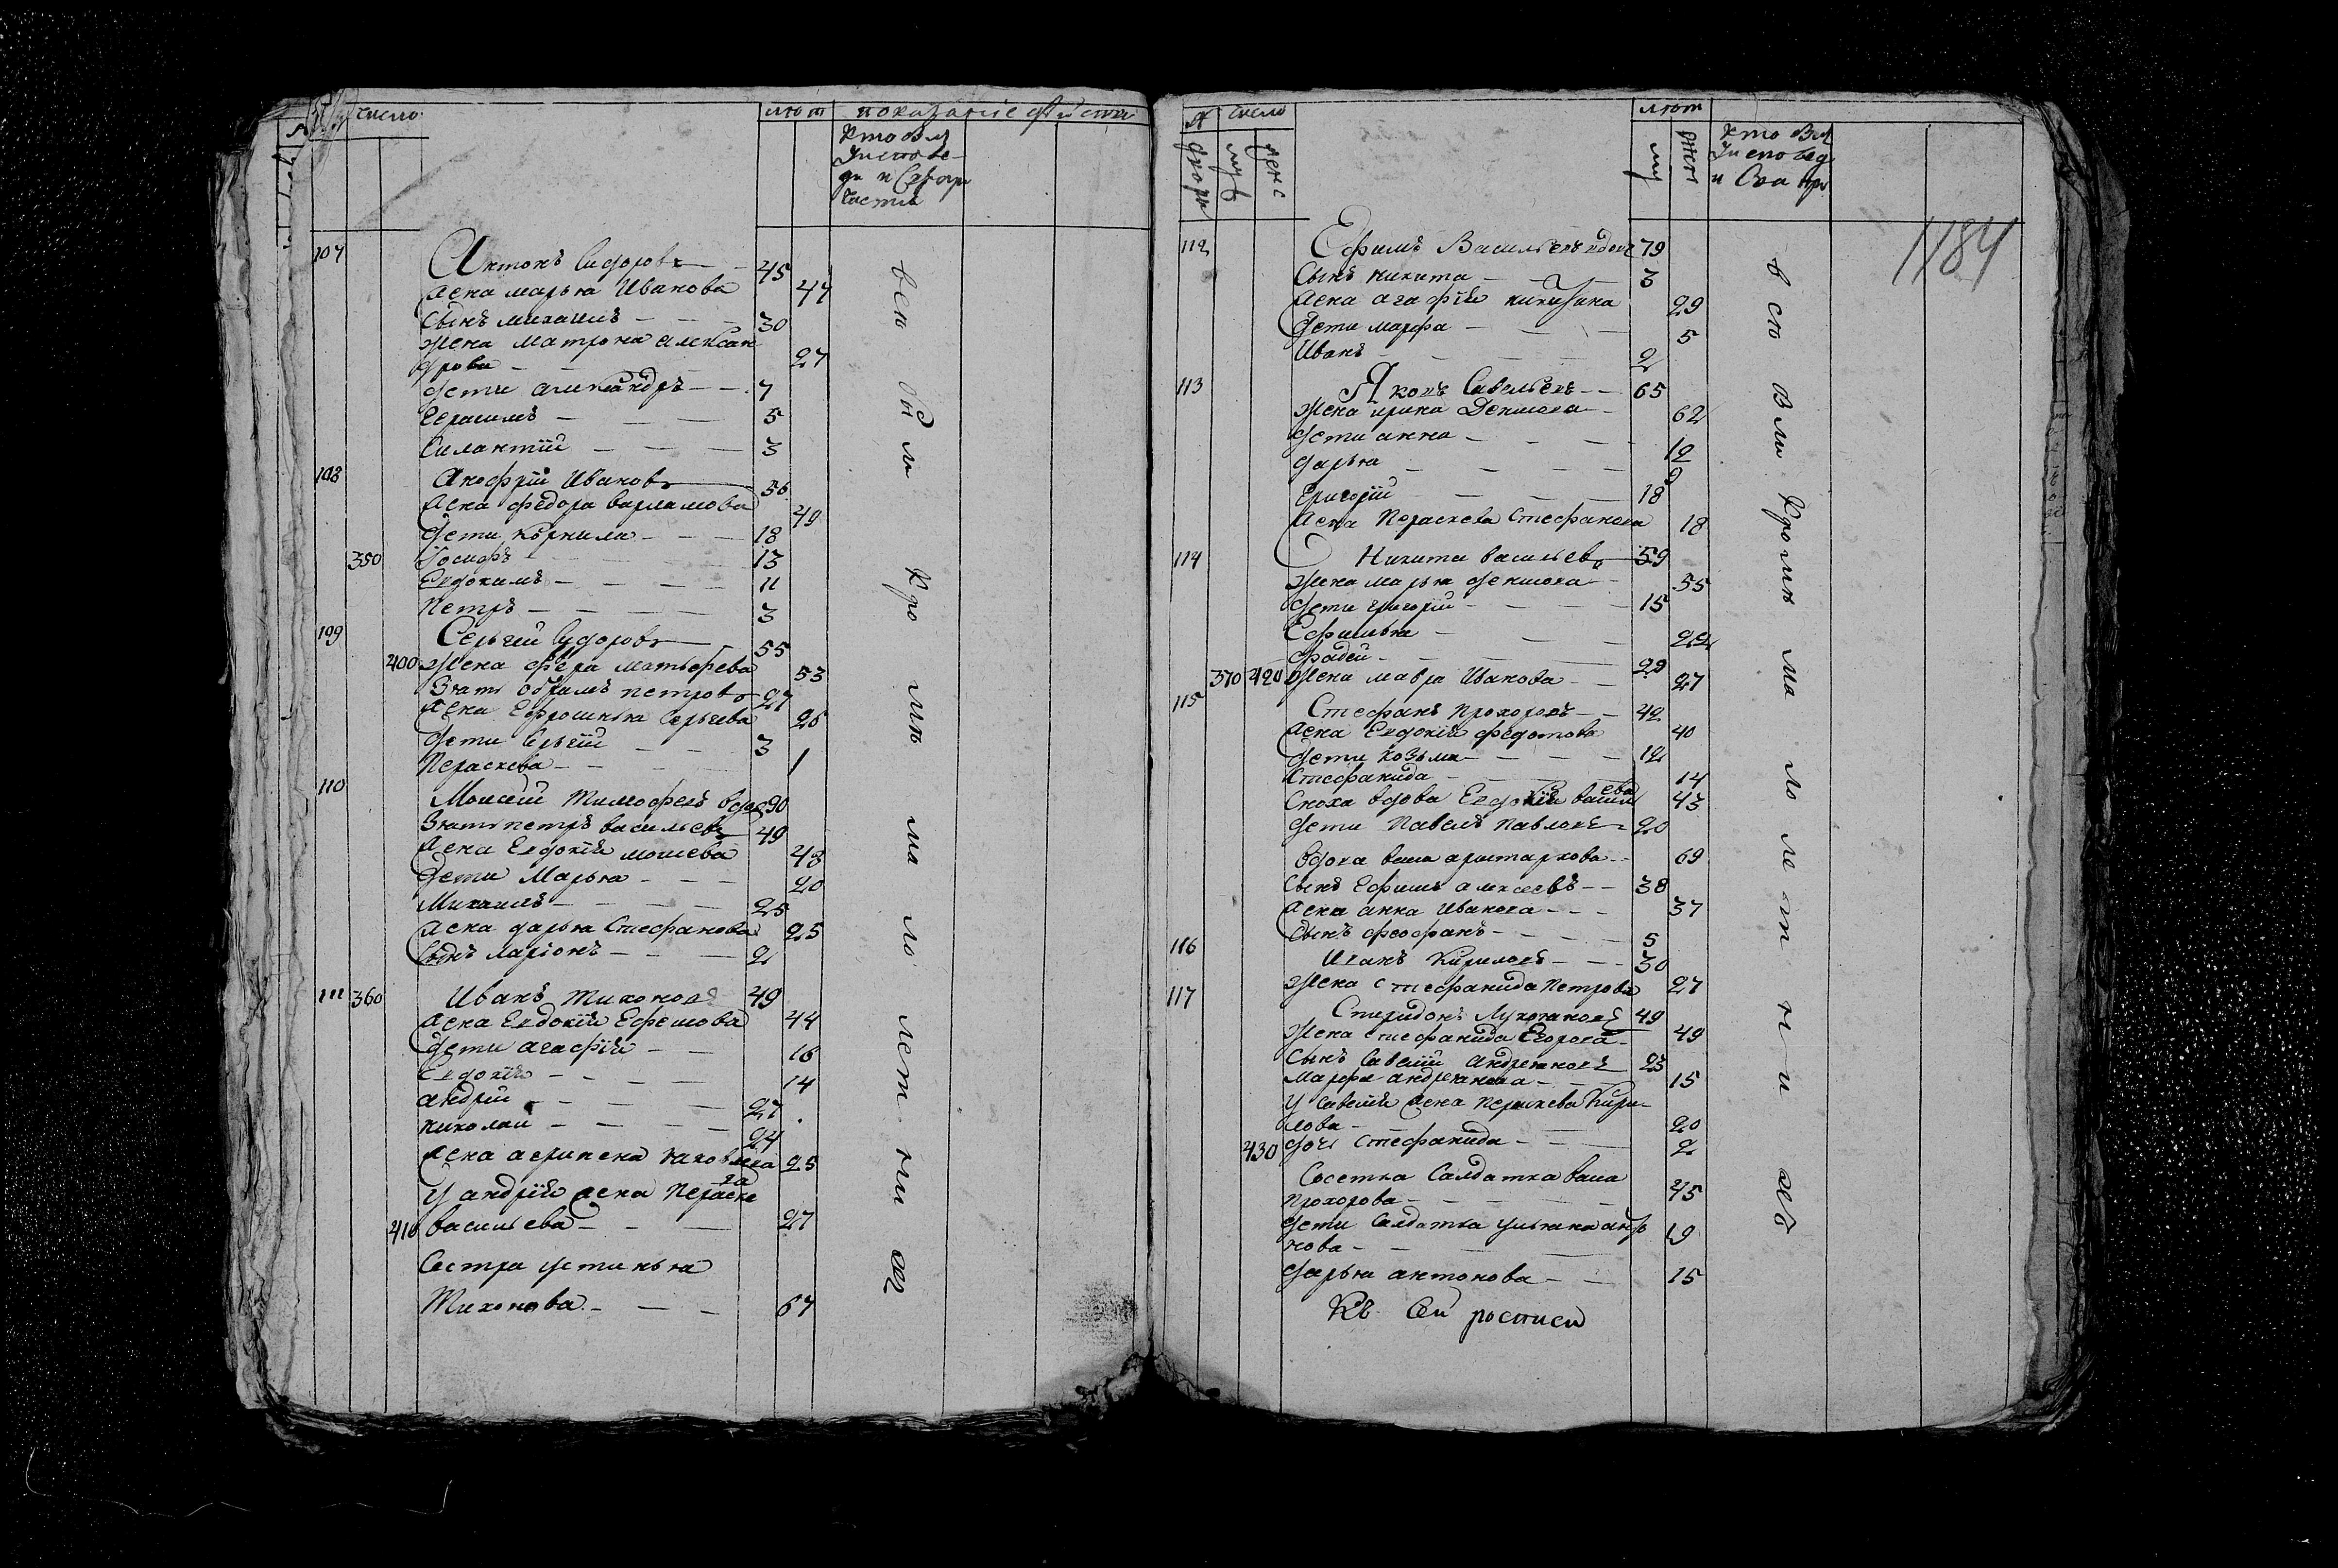 число лѣт показание действи
кто был
у исповеди
и С. прича
стия
107 Антонъ Сидоровъ 45
жена марья Иванова 47
Сынъ михаилъ 30
жена матрона алексан
дрова 27
дети александръ 7
Герасимъ 5
Силантий 3
108 Анофрiй Ивановъ 56
жена федора варламова 49
дети корнили 18
350 Iосифъ 13
Евдокимъ 11
Петръ 3
199 Сергий Сидоровъ 55
400 жена матвеева 53
Зять петровъ 27
жена Ефросинья Сергиева 26
дети Сергiй 3
Пераскева 1
110 Моисей Тимофеевъ вдов 90
Зять петръ васильевъ 49
жена Евдокiя моисева 48
Дети Марья 20
Михаилъ 25
жена дарья Стефанова 25
Сынъ ларiонъ 2
111 360 Иванъ тихоновъ 49
жена Евдокiя Ефемова 44
дети агафiя 16
Евдокiя 14
андрiй 27
николаи 24
жена агрипена яковлева 25
У андрiя жена Пераске
ва
410 васильева 27
Сестра устинья
Тихонова 67
вси были кромѣ малолетнихъ
число лѣт
дворы муж женс
муж женс
кто был
у исповед
и Свя при
1184
112 Ефимъ Васильевъ вдовъ 79
Сынъ никита 3
жена агафiя 29
дети марфа 5
Иванъ 2
113 Яковъ Савельевъ 65
жена ирина Денисова 62
дети анна 12
дарья 9
Григорiй 18
жена Пераскева Стефанова 18
114 Никита васильевъ 59
жена марья денисова 55
дети григорiй 15
Ефимья 22
фадей 29
370 420 жена мавра Иванова 27
115 Стефанъ прохоровъ 42
жена Евдокiя федотова 40
дети козьма 12
Стефанида 14
Сноха вдова Евдокiя васил
ева 43
дети Павелъ Павловъ 20
вдова васа аристархова 69
Сынъ Ефимъ алексеевъ 38
жена анна Иванова 37
Сынъ феофанъ 5
116 Иванъ Кириловъ 30
жена стефанида Петрова 27
117 Спиридонъ Лукояновъ 49
жена стефанида Егорова 49
Сынъ Савелiй андреяновъ 23
Марфа андреянова 15
У Савелiя жена пераскева Кири
лова 20
430 дочь стефанида 2
Сосетка Салдатка васа
Прохорова 45
дети Салдатка ульяна анто
нова 19
дарья антонова 15
Къ Сей росписи
вси были кромѣ малолетнихъ